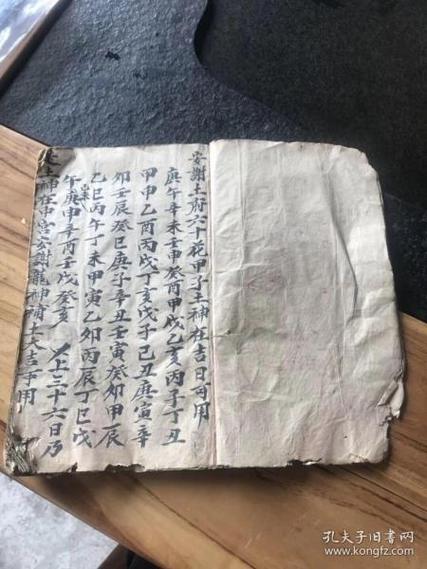 安謝土府六十花甲子土神在吉日可用
庚午辛未壬申癸酉甲戌乙亥丙子丁丑
甲申乙酉丙戌丁亥戊子己丑庚寅辛
卯壬辰癸巳庚子辛丑壬寅癸卯甲辰
乙巳丙午丁未甲寅乙卯丙辰丁巳戊
午己未庚申辛酉壬戌癸亥 以上三十六日乃
是土神在中宮安謝龍神墳土大吉可用
孔夫子旧书网
www.kongfz.com